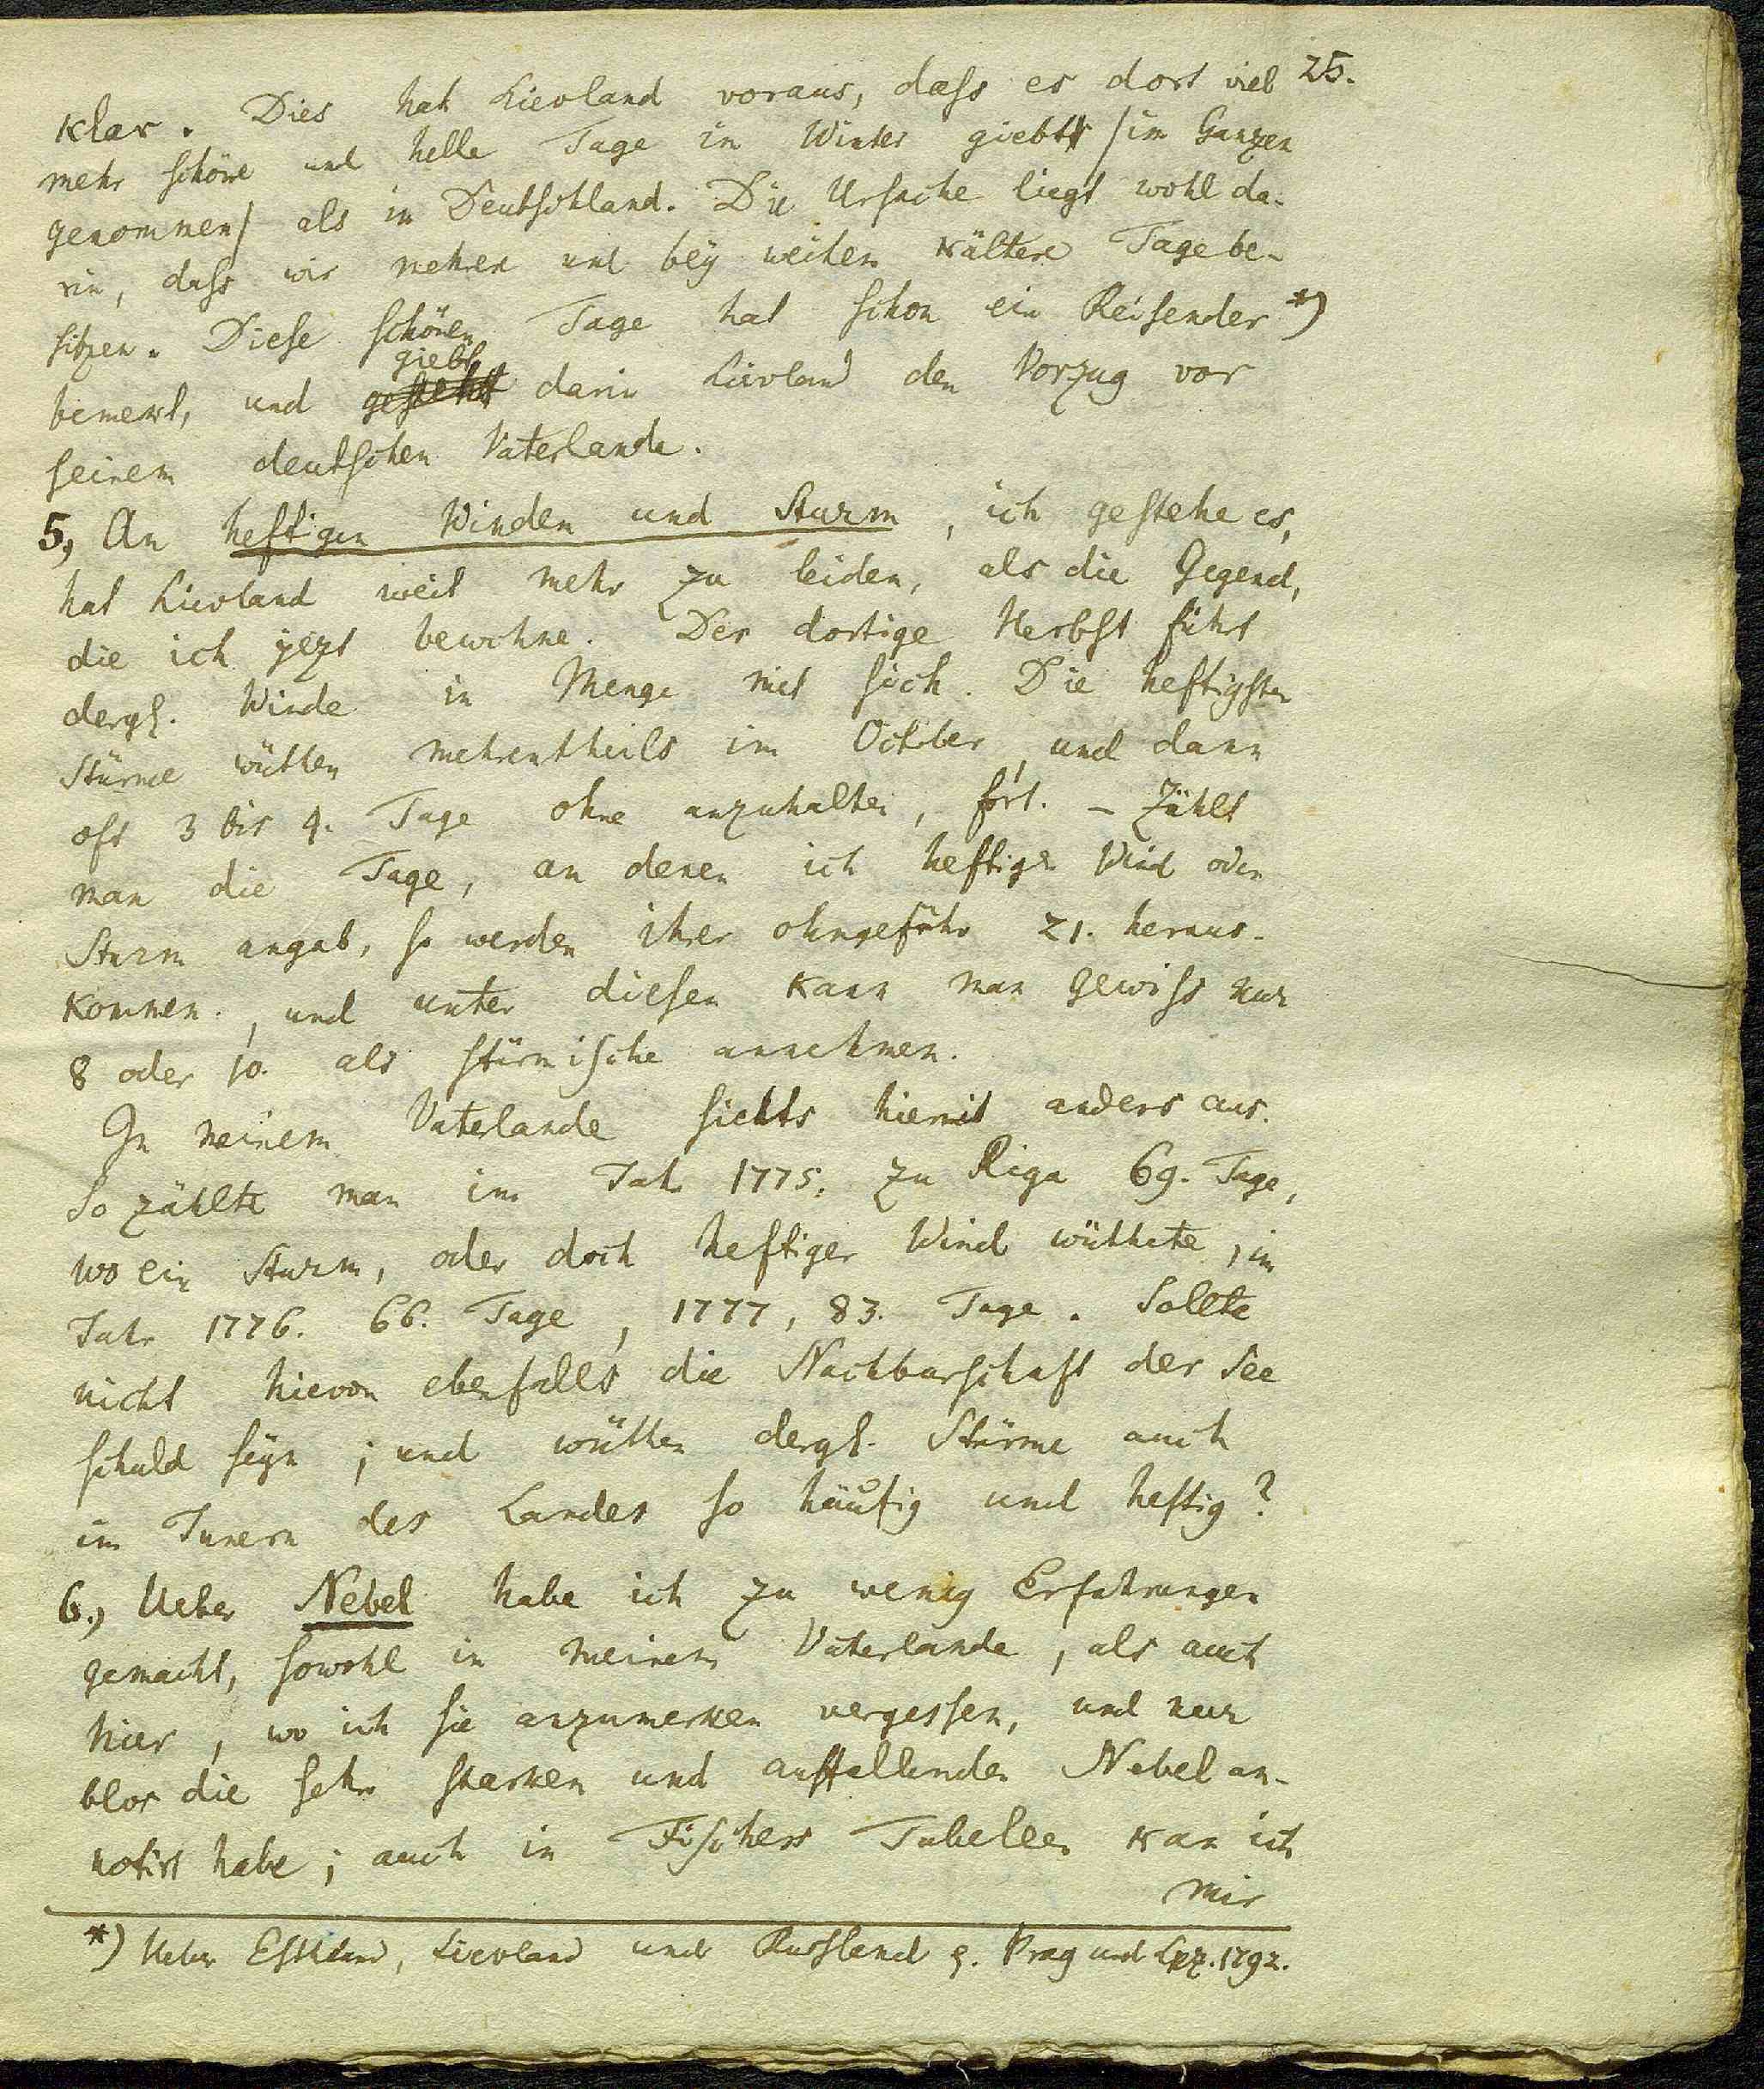 25.
klar. Dies hat Lievland voraus, daſs es dort viel
mehr ſchöne und helle Tage im Winter giebt /im Ganzen
genommen/ als in Deutſchland. Die Urſache liegt wohl da-
rin, daſs wir mehrere und bey weitem kältere Tage be-
ſitzen. Dieſe ſchönen Tage hat ſchon ein Reiſender *)
giebt
bemerkt, und geſteht darin Lievland den Vorzug vor
ſeinem deutſchen Vaterlande.
5, An heftigen Winden und Sturm, ich geſtehe es,
hat Lievland weit mehr zu leiden, als die Gegend,
die ich jezt bewohne. Der dortige Herbſt führt
dergl. Winde in Menge mit ſich. Die heftigſten
Stürme wüthen mehrentheils im October, und dann
oft 3 bis 4. Tage ohne anzuhalten, fort. – Zählt
man die Tage, an denen ich heftigen Wind oder
Sturm angab, ſo werden ihrer ohngefähr 21. heraus-
kommen., und unter dieſen kann man gewiſs nur
8 oder 10. als ſtürmiſche annehmen.
In meinem Vaterlande ſiehts hiermit anders aus.
So zählte man im Jahr 1775. zu Riga 69. Tage,
wo ein Sturm, oder doch heftiger Wind wüthete, im
Jahr 1776. 66. Tage, 1777, 83. Tage. Sollte
nicht hievon ebenfalls die Nachbarſchaft der See
ſchuld ſeyn; und wüthen dergl. Stürme auch
im Innern des Landes ſo häufig und heftig?
6., Ueber Nebel habe ich zu wenig Erfahrungen
gemacht, ſowohl in meinem Vaterlande, als auch
hier, wo ich ſie anzumerken vergeſſen, und nur
blos die ſehr ſtarken und auffallenden Nebel an-
notirt habe; auch in Fiſchers Tabellen kan ich
mir
*) Ueber Eſthland, Lievland und Ruſsland ꝛ. Prag und Lpz. 1792.